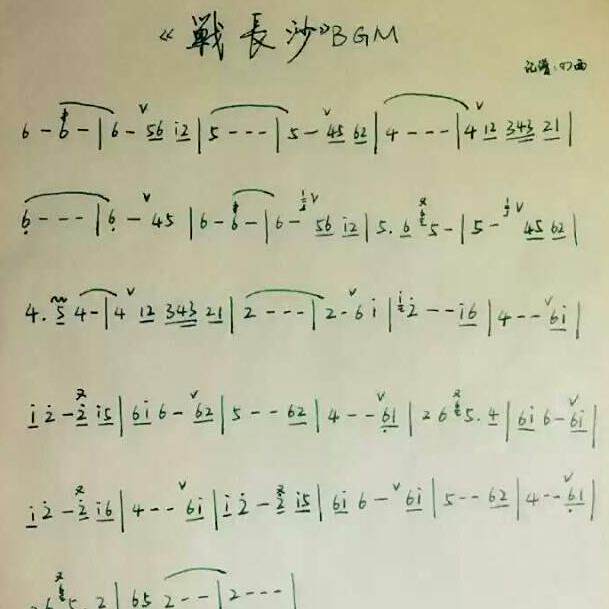 《戰長沙》BGM
记谱:叨西
6 - 6 - | 6 - 56 i2 | 5 - - - | 5 - 45 62 | 4 - - - | 4 12 343 21 |
6 - - - | 6 - 45 | 6 - 6 - | 6 - 56 i2 | 5. 6 5 - | 5 - 45 62 |
4. 5 4 - | 4 12 343 21 | 2 - - - | 2 - 6 i | i2 - - i6 | 4 - - 6i |
i 2 - 2 i5 | 6i 6 - 62 | 5 - - 62 | 4 - - 61 | 2 6 5. 4 | 6i 6 - 6i |
i 2 - 2 i6 | 4 - - 6i | i 2 - 2 i5 | 6i 6 - 6i | 5 - - 62 | 4 - - 61 |
5. 2 | 65 2 - - | 2 - - - |